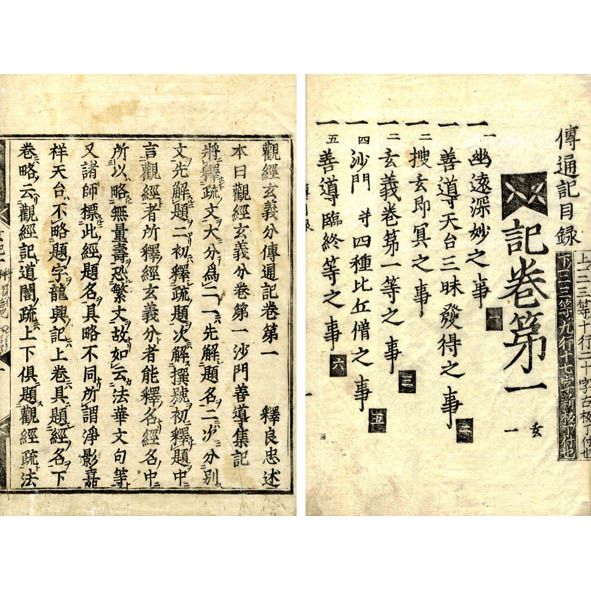 傳通記目録
上一二三等十行二十字古板丁付也
下一二三等九行十七字新板丁付也
記卷第一
玄一
一一幽遠深妙之事
一善導天台三昧發得之事二
一二搜玄即冥之事
一二玄義卷第一等之事三
一四沙門并四種比丘僧之事五
一五善導臨終等之事六
觀經玄義分傳通記卷第一 釋良忠述
本曰觀經玄義分卷第一沙門善導集記
將釋疏文大分為二一先解題名二次分別
文先解題二初釋疏題次解撰號初釋題中
言觀經者所釋經玄義分者能釋名經名中
所以略無量壽恐繁文故如云法華文句等
又諸師標此經題名具略不同所謂淨影嘉
祥天台不略題字龍興記上卷具題經名下
卷略云觀經記道誾疏上下俱題觀經疏法